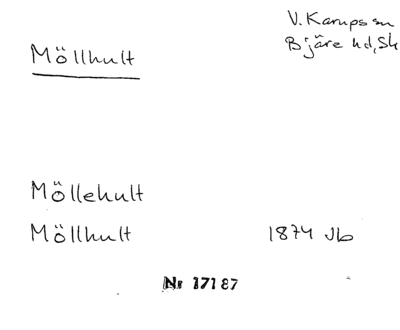 V. Karups sn
Möllhult
Bjäre hd, Sk
Möllehult
Möllhult 1874 Jb
Nr 17187